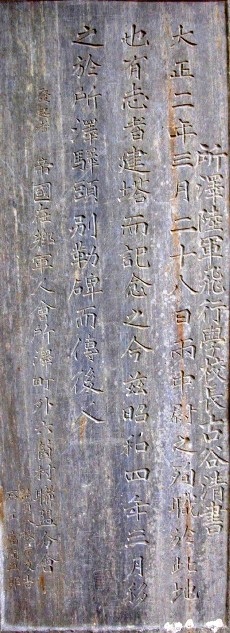 所澤陸軍飛行學校長古谷清書
大正二年三月二十八日兩中尉之殉職於此地
也有志者建塔而記念之今茲昭和四年三月移
之於所澤驛頭別勒碑而傳後人
帝國在鄉軍人會所澤町外六箇村聯合分會